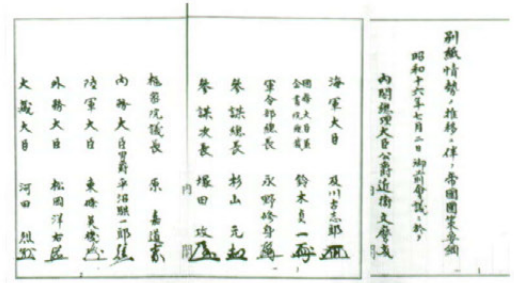 別紙情勢ノ推移ニ伴フ帝國國策要綱
昭和十六年七月二日御前會議ニ於
内閣總理大臣公爵近衛文麿
海軍大臣 及川古志郎
國務大臣 鈴木貞一
軍令部總長 永野修身
參謀總長 杉山元
參謀次長 塚田攻
内閣
樞密院議長 原嘉道
内務大臣男爵平沼騏一郎
陸軍大臣 東條英機
外務大臣 松岡洋右
大藏大臣 河田烈